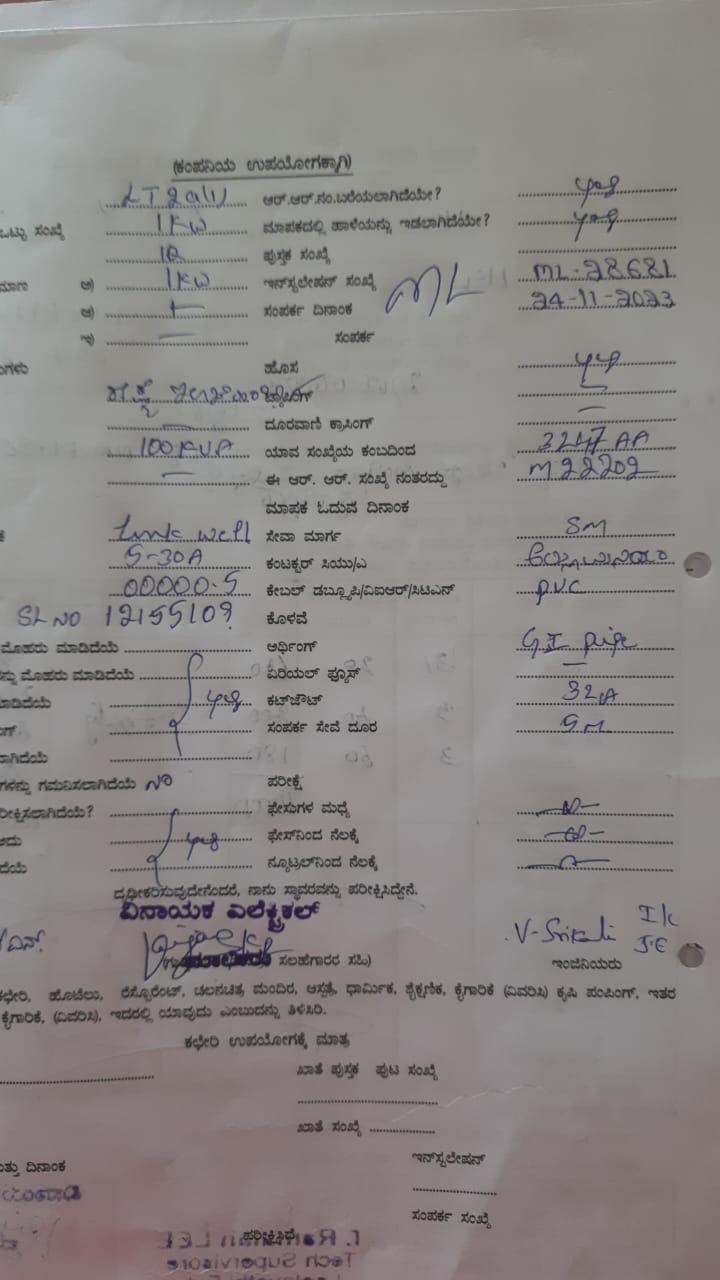 (ಕಂಪನಿಯ ಉಪಯೋಗಕ್ಕಾಗಿ)
LT 2a(i) ಆರ್.ಆರ್.ನಂ.ಬರೆಯಲಾಗಿದೆಯೇ? yes
ಒಟ್ಟು ಸಂಖ್ಯೆ 1KW ಮಾಪಕದಲ್ಲಿ ಹಾಳೆಯನ್ನು ಇಡಲಾಗಿದೆಯೇ? yes
ಪುಸ್ತಕ ಸಂಖ್ಯೆ
ಮಾಣ ಅ) 1KW ಇನ್‌ಸ್ಟಲೇಷನ್ ಸಂಖ್ಯೆ ML ML-28681
ಆ) ಸಂಪರ್ಕ ದಿನಾಂಕ 24-11-2023
ಇ) — ಸಂಪರ್ಕ
ಗಳು ಹೊಸ yes
— ದೂರವಾಣಿ ಕ್ರಾಸಿಂಗ್ —
100KVA ಯಾವ ಸಂಖ್ಯೆಯ ಕಂಬದಿಂದ 3247 AA
— ಈ ಆರ್. ಆರ್. ಸಂಖ್ಯೆ ನಂತರದ್ದು M22202
ಮಾಪಕ ಓದುವ ದಿನಾಂಕ
Link well ಸೇವಾ ಮಾರ್ಗ 8M
5-30A ಕಂಟಕ್ಟರ್ ಸಿಯು/ಎ
00000.5 ಕೇಬಲ್ ಡಬ್ಲ್ಯೂಪಿ/ವಿಐಆರ್/ಸಿಟಿಎನ್ PVC
SL NO 12155109 ಕೊಳವೆ
ಮೊಹರು ಮಾಡಿದೆಯೆ ಅರ್ಥಿಂಗ್ G.I pipe
ನ್ನು ಮೊಹರು ಮಾಡಿದೆಯೆ ಏರಿಯಲ್ ಫ್ಯೂಸ್ —
ಮಾಡಿದೆಯೆ yes ಕಟ್‌ಔಟ್ 32A
ಗ್ ಸಂಪರ್ಕ ಸೇವೆ ದೂರ 5M
ಲಾಗಿದೆಯೆ
ಗಳನ್ನು ಗಮನಿಸಲಾಗಿದೆಯೆ NO ಪರೀಕ್ಷೆ
ರೀಕ್ಷಿಸಲಾಗಿದೆಯೆ? ಫೇಸುಗಳ ಮಧ್ಯೆ
ಅದು yes ಫೇಸ್‌ನಿಂದ ನೆಲಕ್ಕೆ
ದೆಯೆ ನ್ಯೂಟ್ರಲ್‌ನಿಂದ ನೆಲಕ್ಕೆ
ದೃಢೀಕರಿಸುವುದೇನೆಂದರೆ, ನಾನು ಸ್ಥಾವರವನ್ನು ಪರೀಕ್ಷಿಸಿದ್ದೇನೆ.
ವಿನಾಯಕ ಎಲೆಕ್ಟ್ರಿಕಲ್
ಎನ್. I/c
ಸಲಹೆಗಾರರ ಸಹಿ) J.E
ಇಂಜಿನಿಯರು
ಕಛೇರಿ, ಹೊಟೆಲು, ರೆಸ್ಟೊರೆಂಟ್, ಚಲನಚಿತ್ರ ಮಂದಿರ, ಆಸ್ಪತ್ರೆ, ಧಾರ್ಮಿಕ, ಶೈಕ್ಷಣಿಕ, ಕೈಗಾರಿಕೆ (ವಿವರಿಸಿ) ಕೃಷಿ ಪಂಪಿಂಗ್, ಇತರ
ಕೈಗಾರಿಕೆ, (ವಿವರಿಸಿ), ಇದರಲ್ಲಿ ಯಾವುದು ಎಂಬುದನ್ನು ತಿಳಿಸಿರಿ.
ಕಛೇರಿ ಉಪಯೋಗಕ್ಕೆ ಮಾತ್ರ
ಖಾತೆ ಪುಸ್ತಕ ಪುಟ ಸಂಖ್ಯೆ
ಖಾತೆ ಸಂಖ್ಯೆ
ಮತ್ತು ದಿನಾಂಕ ಇನ್‌ಸ್ಟಲೇಷನ್
ಸಂಪರ್ಕ ಸಂಖ್ಯೆ